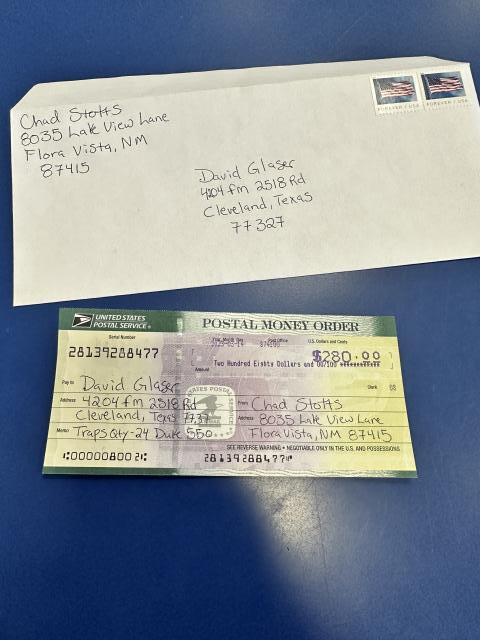 Chad Stotts
8035 Lake View Lane
Flora Vista, NM
87415
FOREVER / USA
FOREVER / USA
David Glaser
4204 fm 2518 Rd
Cleveland, Texas
77327
UNITED STATES
POSTAL SERVICE®
POSTAL MONEY ORDER
Serial Number
Year, Month, Day
Post Office
U.S. Dollars and Cents
28139288477
$280.00
Amount
Two Hundred Eighty Dollars and 00/100
Pay to
David Glaser
Clerk
Address
4204 fm 2518 Rd
Cleveland, Texas
From
Chad Stotts
Address
8035 Lake View Lane
Memo
Traps Qty-24 Duke 550
Flora Vista, NM 87415
SEE REVERSE WARNING • NEGOTIABLE ONLY IN THE U.S. AND POSSESSIONS
⑆000008002⑆
28139288477⑈